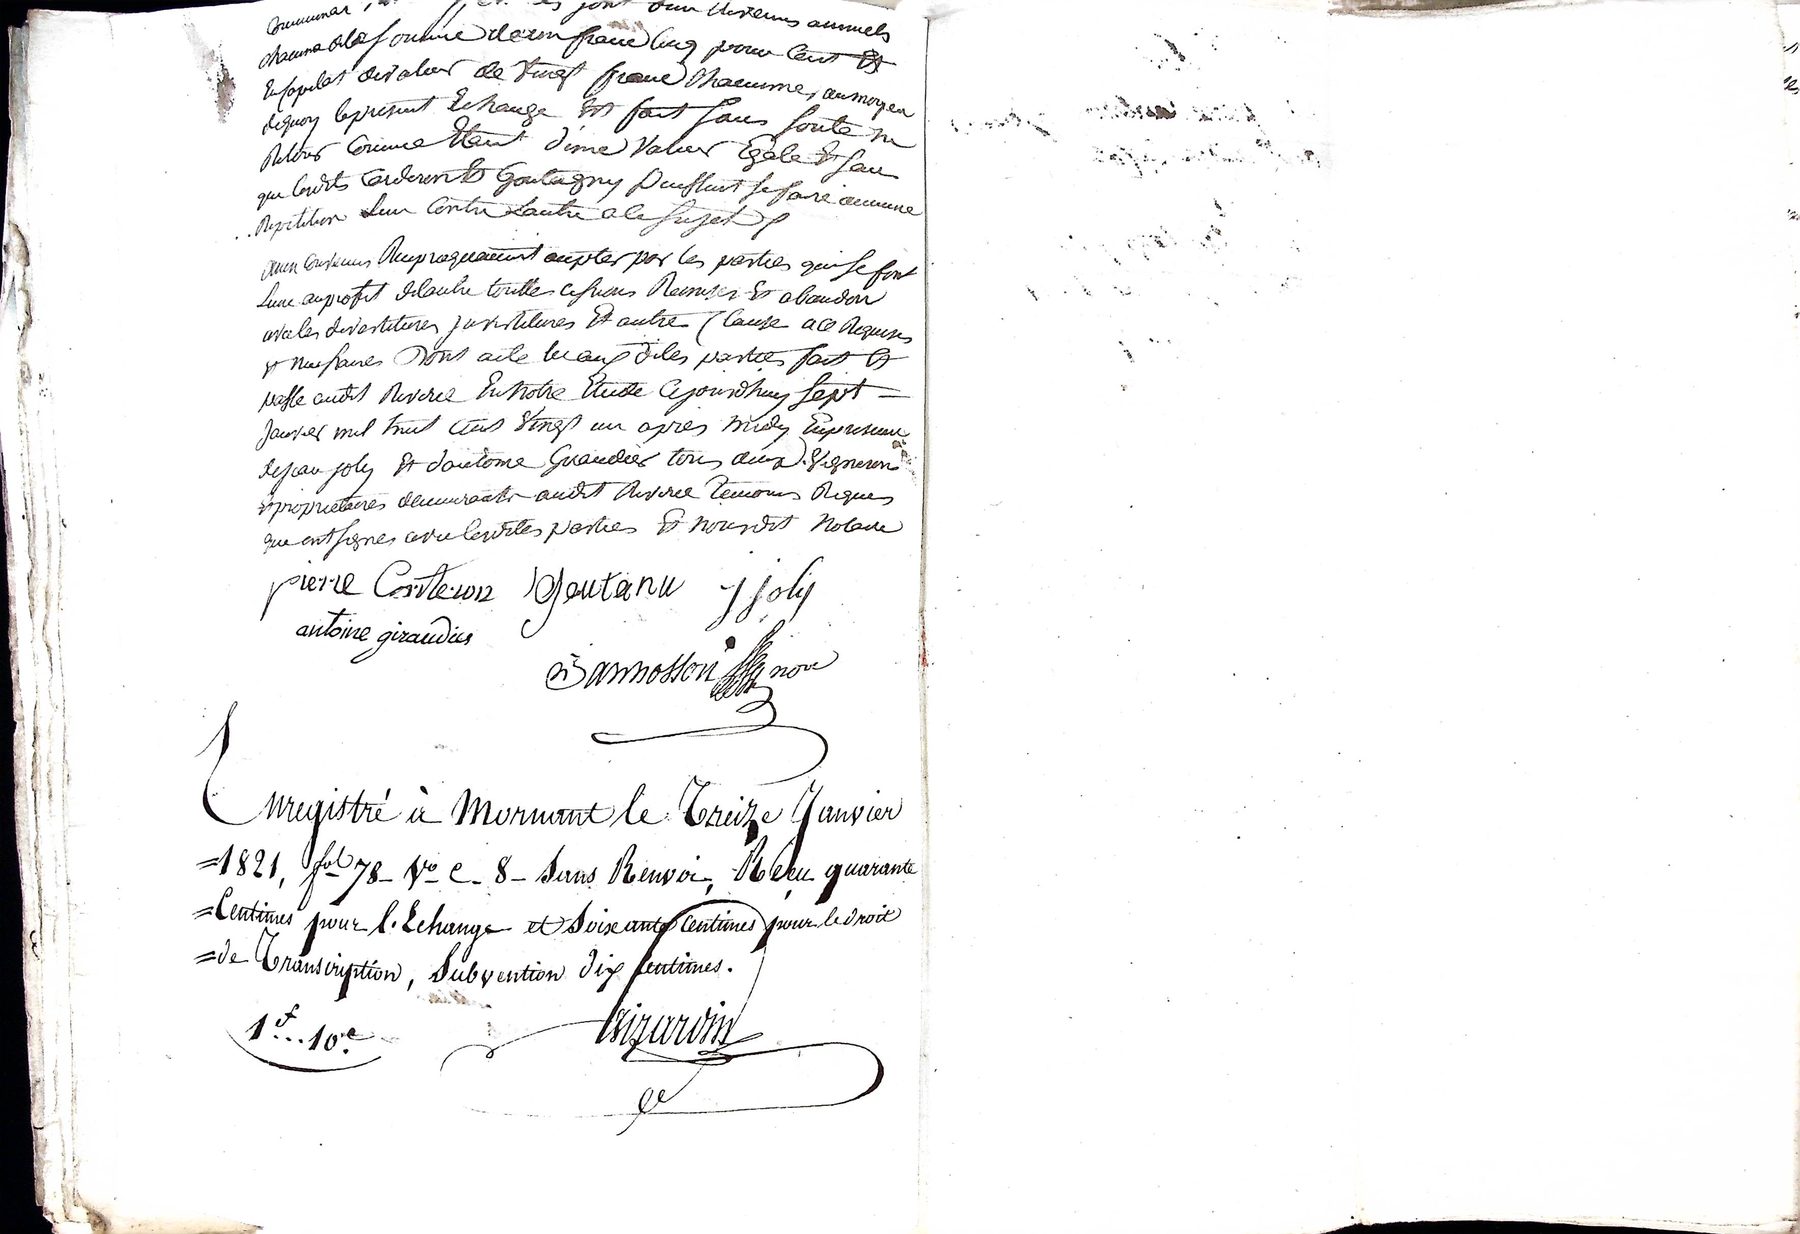 sont d'un Revenu annuels
chacune de la somme de un franc cinq pour cent Et
En Capital de valeur de vingt franc chacunne, au moyen
de quoy le présent Echange Est fait sans soute ny
Retour comme Etant d'une valeur Egale Et sans
que lesdits Corderon Et Goutagny puissent se faire aucunne
Répétition L'un Contre L'autre a ce sujet
Ainsi Convenus Réciproquement acepter par les parties qui se font
L'une au profit de L'autre toutte cessions Remises Et abandon
avec les devestitures investitures Et autre Clause a ce Requises
Et nécessaires Dont acte lu aux dites parties fait Et
passé audit Riverie En notre Etude ce jourd'huy sept
Janvier mil huit cent vingt un après midy En présence
de jean joly Et d'antoine Giraudier tous deux Vignerons
Et propriétaires demeurants audit Riverie Temoins Requis
que ont signés avec lesdittes parties Et nous dit Notaire
pierre Corderon Goutanu j joly
antoine giraudier
Bannosson nore
Enregistré à Mornant le Treize Janvier
=1821, fol 78_ Vo c_ 8_ Sans Renvoi, Reçu quarante
=Centimes pour l'Echange et Soixante Centimes pour le droit
=de Transcription, Subvention dix Centimes.
1f..10c.
Girardin